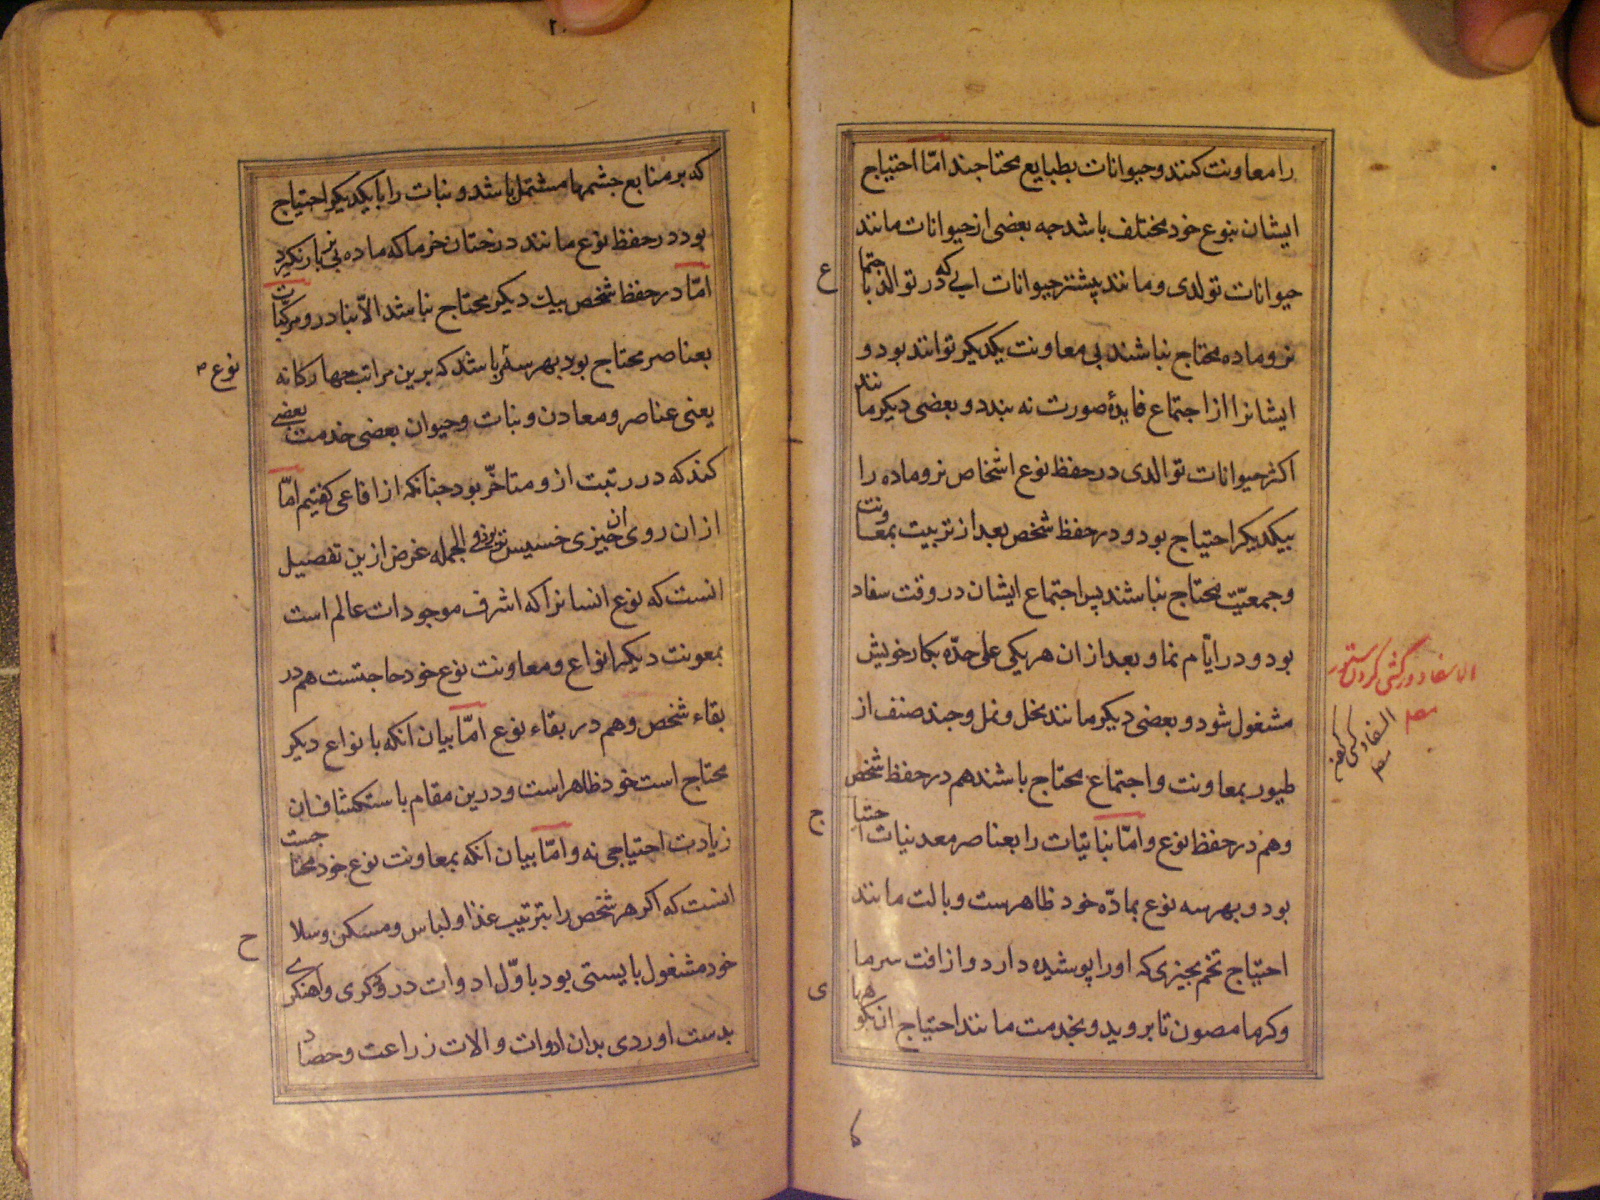 را معاونت کنند و حیوانات بطبایع محتاجند امّا احتیاج
ایشان بنوع خود مختلف باشد چه بعضی از حیوانات مانند
حیوانات تولدی و مانند پیشتر حیوانات ابی که در توالد باجتما
ع
نر و ماده محتاج نباشند بی معاونت یکدیکر توانند بود و
ایشانرا از اجتماع فایدهٔ صورت نه بندد و بعضی دیکر مانند
اکثر حیوانات توالدی در حفظ نوع اشخاص نر و ماده را
بیکدیکر احتیاج بود و در حفظ شخص بعد از تربیت بمعاونت
و جمعیّت محتاج نباشند پس اجتماع ایشان در وقت سفاد
بود و در ایّام نما و بعد از ان هر یکی علی حدّه بکار خویش
مشغول شود و بعضی دیکر مانند نخل و نمل و چند صنف از
طیور بمعاونت و اجتماع محتاج باشند هم در حفظ شخص
و هم در حفظ نوع و امّا نباتیات را بعناصر معدنیات احتیا
ج
بود و بهر سه نوع بمادّه خود ظاهرست و بالت مانند
احتیاج تخم بچیزی که اورا پوشیده دارد و از افت سرما
و کرما مصون تا بروید و بخدمت مانند احتیاج ان بکوهها
ی
السفاد
که بر منابع چشمها مشتمل باشد و نبات را با یکدیکر احتیاج
بود در حفظ نوع مانند درختان خرما که ماده بی نر بار نکیرد
امّا در حفظ شخص بیک دیکر محتاج نباشد الّا بنادر و مرکبات
بعناصر محتاج بود بهر سه باشد که برین مراتب چهارکانه
نوع
یعنی عناصر و معادن و نبات و حیوان بعضی خدمت بعضی
کند که در رتبت ازو متاخّر بود چنانکه از افاعی کفتیم امّا
از ان روی ان چیزی خسیس تر بود و فی الجمله غرض ازین تفصیل
انست که نوع انسانرا که اشرف موجودات عالم است
بمعونت دیکر انواع و معاونت نوع خود حاجتست هم در
بقاء شخص و هم در بقاء نوع امّا بیان انکه بانواع دیکر
محتاج است خود ظاهر است و درین مقام باستکشاف ان
زیادت احتیاجی نه و امّا بیان انکه بمعاونت نوع خود محتاجست
انست که اکر هر شخص را بترتیب غذا و لباس و مسکن و سلا
ح
خود مشغول بایستی بود با اوّل ادوات درودکری و اهنکری
بدست اوردی بدان ادوات و الات زراعت و حصاد